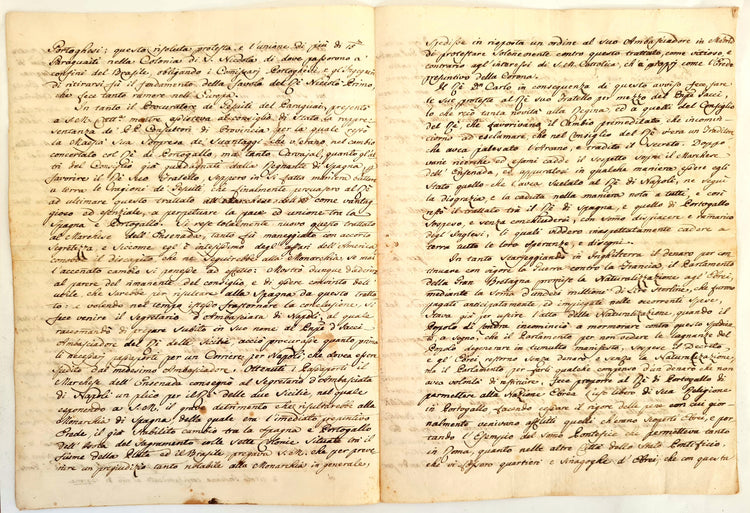 Portoghesi: questa risoluta protesta, e l'unione di più di
Paraguaiti nella Colonia di S. Nicola, di dove passorono a'
confini del Brasile, obligando i Comissarj Portoghesi, e gl'Ingegneri
di ritirarsi fù il fondamento della favola del Rè Nicolò Primo,
che fece tanto rumore nell'Europa.
In tanto il Procuratore de' Gesuiti del Paraguai, presentò
a S. M. Catt.ca mentre assisteva al consiglio di Stato la rappre=
sentanza de' PP. Gesuiti di Provincia, per la quale restò
la Maestà Sua sorpresa de' svantaggi che v'erano nel cambio
concertato col Rè di Portogallo, ma tanto Carvajal, quanto gl'al=
tri del Consiglio già guadagnati dalla Regnante di Spagna per
favorire il Rè Suo Fratello, seppero in sì fatta maniera buttare
a terra le ragioni de' Gesuiti che finalmente persuasero al Rè
ad ultimare questo trattato come vantag=
gioso ed essenziale, a perpetuare la pace ed unione tra la
Spagna e Portogallo. Giunse totalmente nuovo questo trattato
al Marchese dell'Ensenada, tanto fù maneggiato con accorta
segretezza e siccome egli è intesissimo degl'affari dell'America
conobbe il discapito che ne seguirebbe alla Monarchia se mai
l'accennato cambio si ponesse ad effetto: Mostrò dunque d'aderire
al parere del rimanente del consiglio, e di essere convinto dell'
utile che sarebbe per risultarne alla Spagna da questo tratta=
to: e volendo nel tempo istesso frastornare la conclusione,
fece venire il Segretario d'Ambasciata di Napoli, al quale
raccomandò di sapere subito in suo nome al Prnpe d'Jacci
Ambasciadore del Rè delle Sicilie, acciò procurasse quanto prima
li necessarj passaporti per un Corriere per Napoli, che dovea essere
spedito dal medesimo Ambasciadore. Ottenuti i Passaporti il
Marchese dell'Ensenada consegnò al Segretario d'Ambasciata
di Napoli un plico per il Rè delle due Sicilie, nel quale
esponendo a S. M. il grave detrimento che risultarebbe alla
Monarchia di Spagna della quale era l'imediato presuntivo
Erede, il già stabilito cambio tra la Spagna e Portogallo
dell'Isola del Sagramento colle Sette Colonie situate trà il
fiume della Plata ed il Brasile, pregava S. M. che per preve=
nire un pregiudizio tanto notabile alla Monarchia in generale,
Spedisse in risposta un ordine al suo Ambasciadore in Madrid
di protestare solennemente contro questo trattato, come vizioso, e
contrario agl'interessi di S. M. Cattolica, ch'a proprj come l'Erede
presuntivo della Corona.
Il Rè D. Carlo in conseguenza di questo avviso fece fare
le sue proteste al Rè suo Fratello per mezzo del Prnpe Jacci,
lo che recò tanta novità alla Regina, ed a quelli del Consiglio
del Rè, che favorivano il cambio premeditato che incomin=
ciorono ad esclamare che nel Consiglio del Rè v'era un Traditore
che avea palesato l'Arcano, e tradito il Secreto. Doppo
varie ricerche ed esami cadde il sospetto sopra il Marchese
dell'Ensenada, ed appuratosi in qualche maniera essere egli
stato quello che l'avea svelato al Rè di Napoli, ne seguì
la disgrazia, e la caduta nella maniera nota a tutti, e così
restò il trattato trà il Rè di Spagna, e quello di Portogallo
sospeso, e senza conchiudersi, con sommo dispiacere e rammarico
degl'Inglesi, li quali viddero inaspettatamente cadere a
terra tutte le loro speranze, e disegni.
In tanto scarseggiando in Inghilterra il denaro per con=
tinuare con vigore la Guerra contro la Francia, il Parlamento
della Gran Bretagna promise la Naturalizzazione agl'Ebrei,
mediante la soma d'undici millioni di Lire Sterline, che furono
pagati anticipatamente ed impiegati nelle occorrenti spese,
Stava già per uscire l'atto della Naturalizzazione, quando il
Popolo di Londra incominciò a mormorare contro questo
a segno, che il Parlamento per non vedere la sagace
degenerare in tumulto manifesto, sospese il Decreto,
e gl'Ebrei restorno senza denaro e senza la Naturalizzazione,
mà il Parlamento per farli qualche compenso d'un denaro che non
avea volontà di restituire, fece proporre al Rè di Portogallo di
permettere alla Nazione Ebrea l'uso libero di sua Religione
in Portogallo facendo cessare il rigore delle pene con cui gior=
nalmente venivano afflitti quelli ch'erano segreti Ebrei, e por=
tando l'Esempio del Somo Pontefice che permetteva tanto
in Roma, quanto nelle altre Città dello Stato Pontificio.
che vi fossero quartieri e Sinagoghe d'Ebrei, che con questa